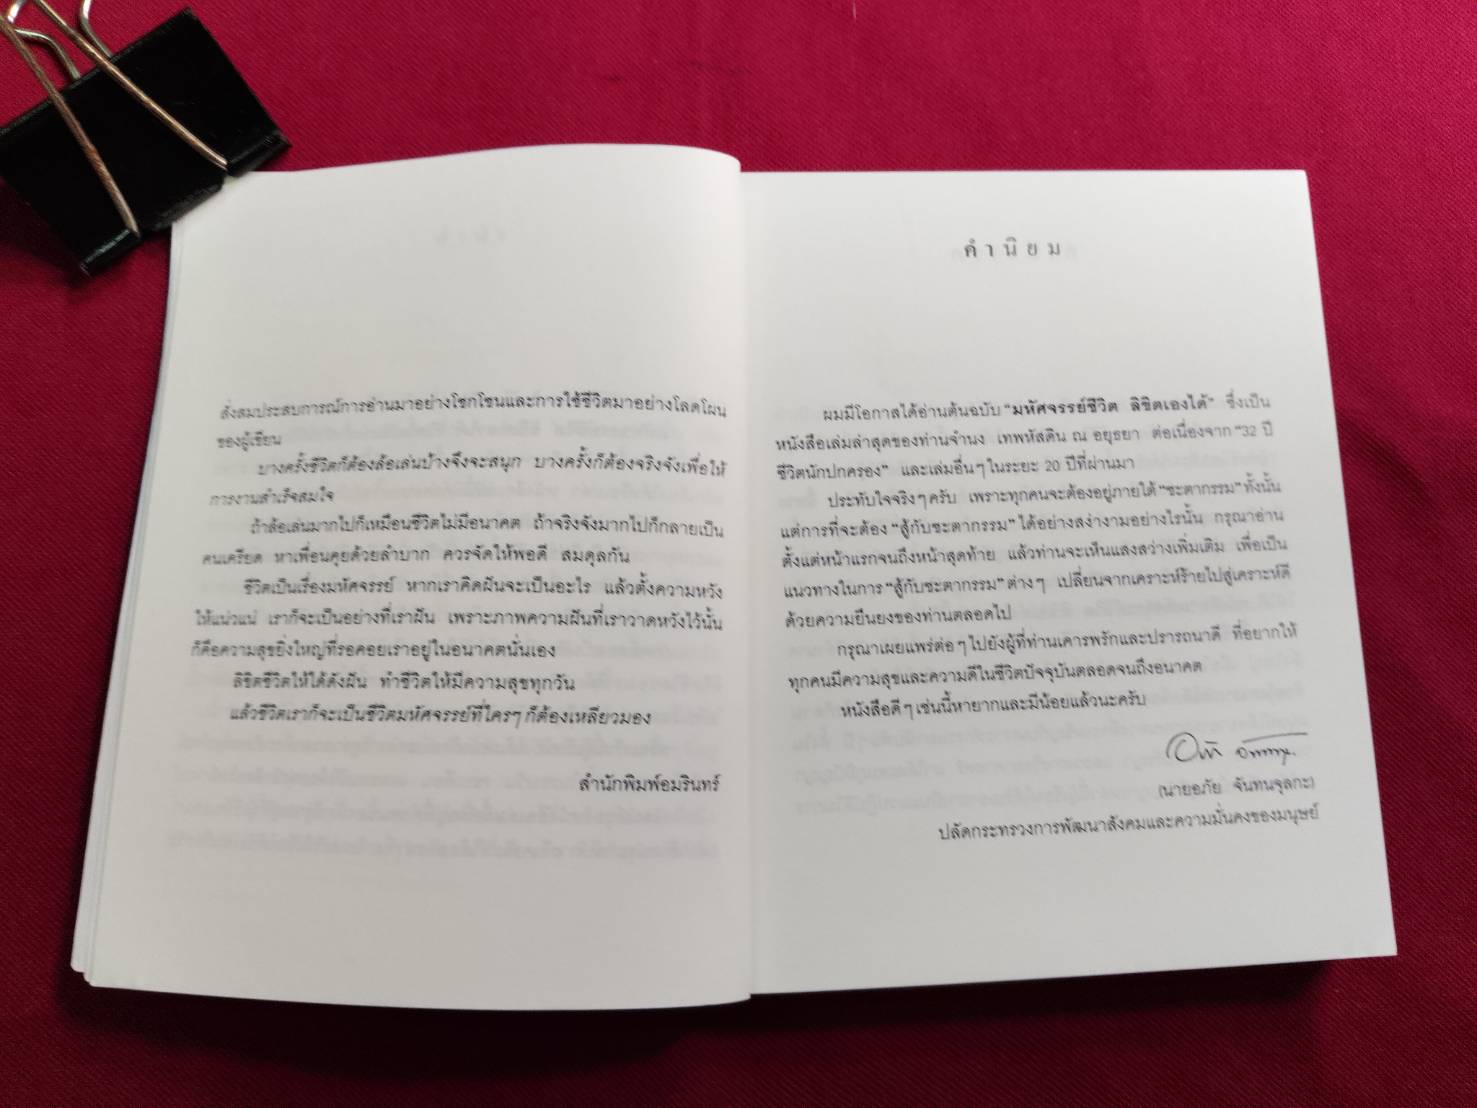 สั่งสมประสบการณ์การอ่านมาอย่างโชกโชนและการใช้ชีวิตมาอย่างโลดโผน
ของผู้เขียน
บางครั้งชีวิตก็ต้องล้อเล่นบ้างจึงจะสนุก บางครั้งก็ต้องจริงจังเพื่อให้
การงานสำเร็จสมใจ
ถ้าล้อเล่นมากไปก็เหมือนชีวิตไม่มีอนาคต ถ้าจริงจังมากไปก็กลายเป็น
คนเครียด หาเพื่อนคุยด้วยลำบาก ควรจัดให้พอดี สมดุลกัน
ชีวิตเป็นเรื่องมหัศจรรย์ หากเราคิดฝันจะเป็นอะไร แล้วตั้งความหวัง
ให้แน่วแน่ เราก็จะเป็นอย่างที่เราฝัน เพราะภาพความฝันที่เราวาดหวังไว้นั้น
ก็คือความสุขยิ่งใหญ่ที่รอคอยเราอยู่ในอนาคตนั่นเอง
ลิขิตชีวิตให้ได้ดังฝัน ทำชีวิตให้มีความสุขทุกวัน
แล้วชีวิตเราก็จะเป็นชีวิตมหัศจรรย์ที่ใครๆ ก็ต้องเหลียวมอง
สำนักพิมพ์อมรินทร์
คำนิยม
ผมมีโอกาสได้อ่านต้นฉบับ "มหัศจรรย์ชีวิต ลิขิตเองได้" ซึ่งเป็น
หนังสือเล่มล่าสุดของท่านจำนง เทพหัสดิน ณ อยุธยา ต่อเนื่องจาก "32 ปี
ชีวิตนักปกครอง" และเล่มอื่นๆ ในระยะ 20 ปีที่ผ่านมา
ประทับใจจริงๆ ครับ เพราะทุกคนจะต้องอยู่ภายใต้ "ชะตากรรม" ทั้งนั้น
แต่การที่จะต้อง "สู้กับชะตากรรม" ได้อย่างสง่างามอย่างไรนั้น กรุณาอ่าน
ตั้งแต่หน้าแรกจนถึงหน้าสุดท้าย แล้วท่านจะเห็นแสงสว่างเพิ่มเติม เพื่อเป็น
แนวทางในการ "สู้กับชะตากรรม" ต่างๆ เปลี่ยนจากเคราะห์ร้ายไปสู่เคราะห์ดี
ด้วยความยืนยงของท่านตลอดไป
กรุณาเผยแพร่ต่อๆ ไปยังผู้ที่ท่านเคารพรักและปรารถนาดี ที่อยากให้
ทุกคนมีความสุขและความดีในชีวิตปัจจุบันตลอดจนถึงอนาคต
หนังสือดีๆ เช่นนี้หายากและมีน้อยแล้วนะครับ
(นายอภัย จันทนจุลกะ)
ปลัดกระทรวงการพัฒนาสังคมและความมั่นคงของมนุษย์